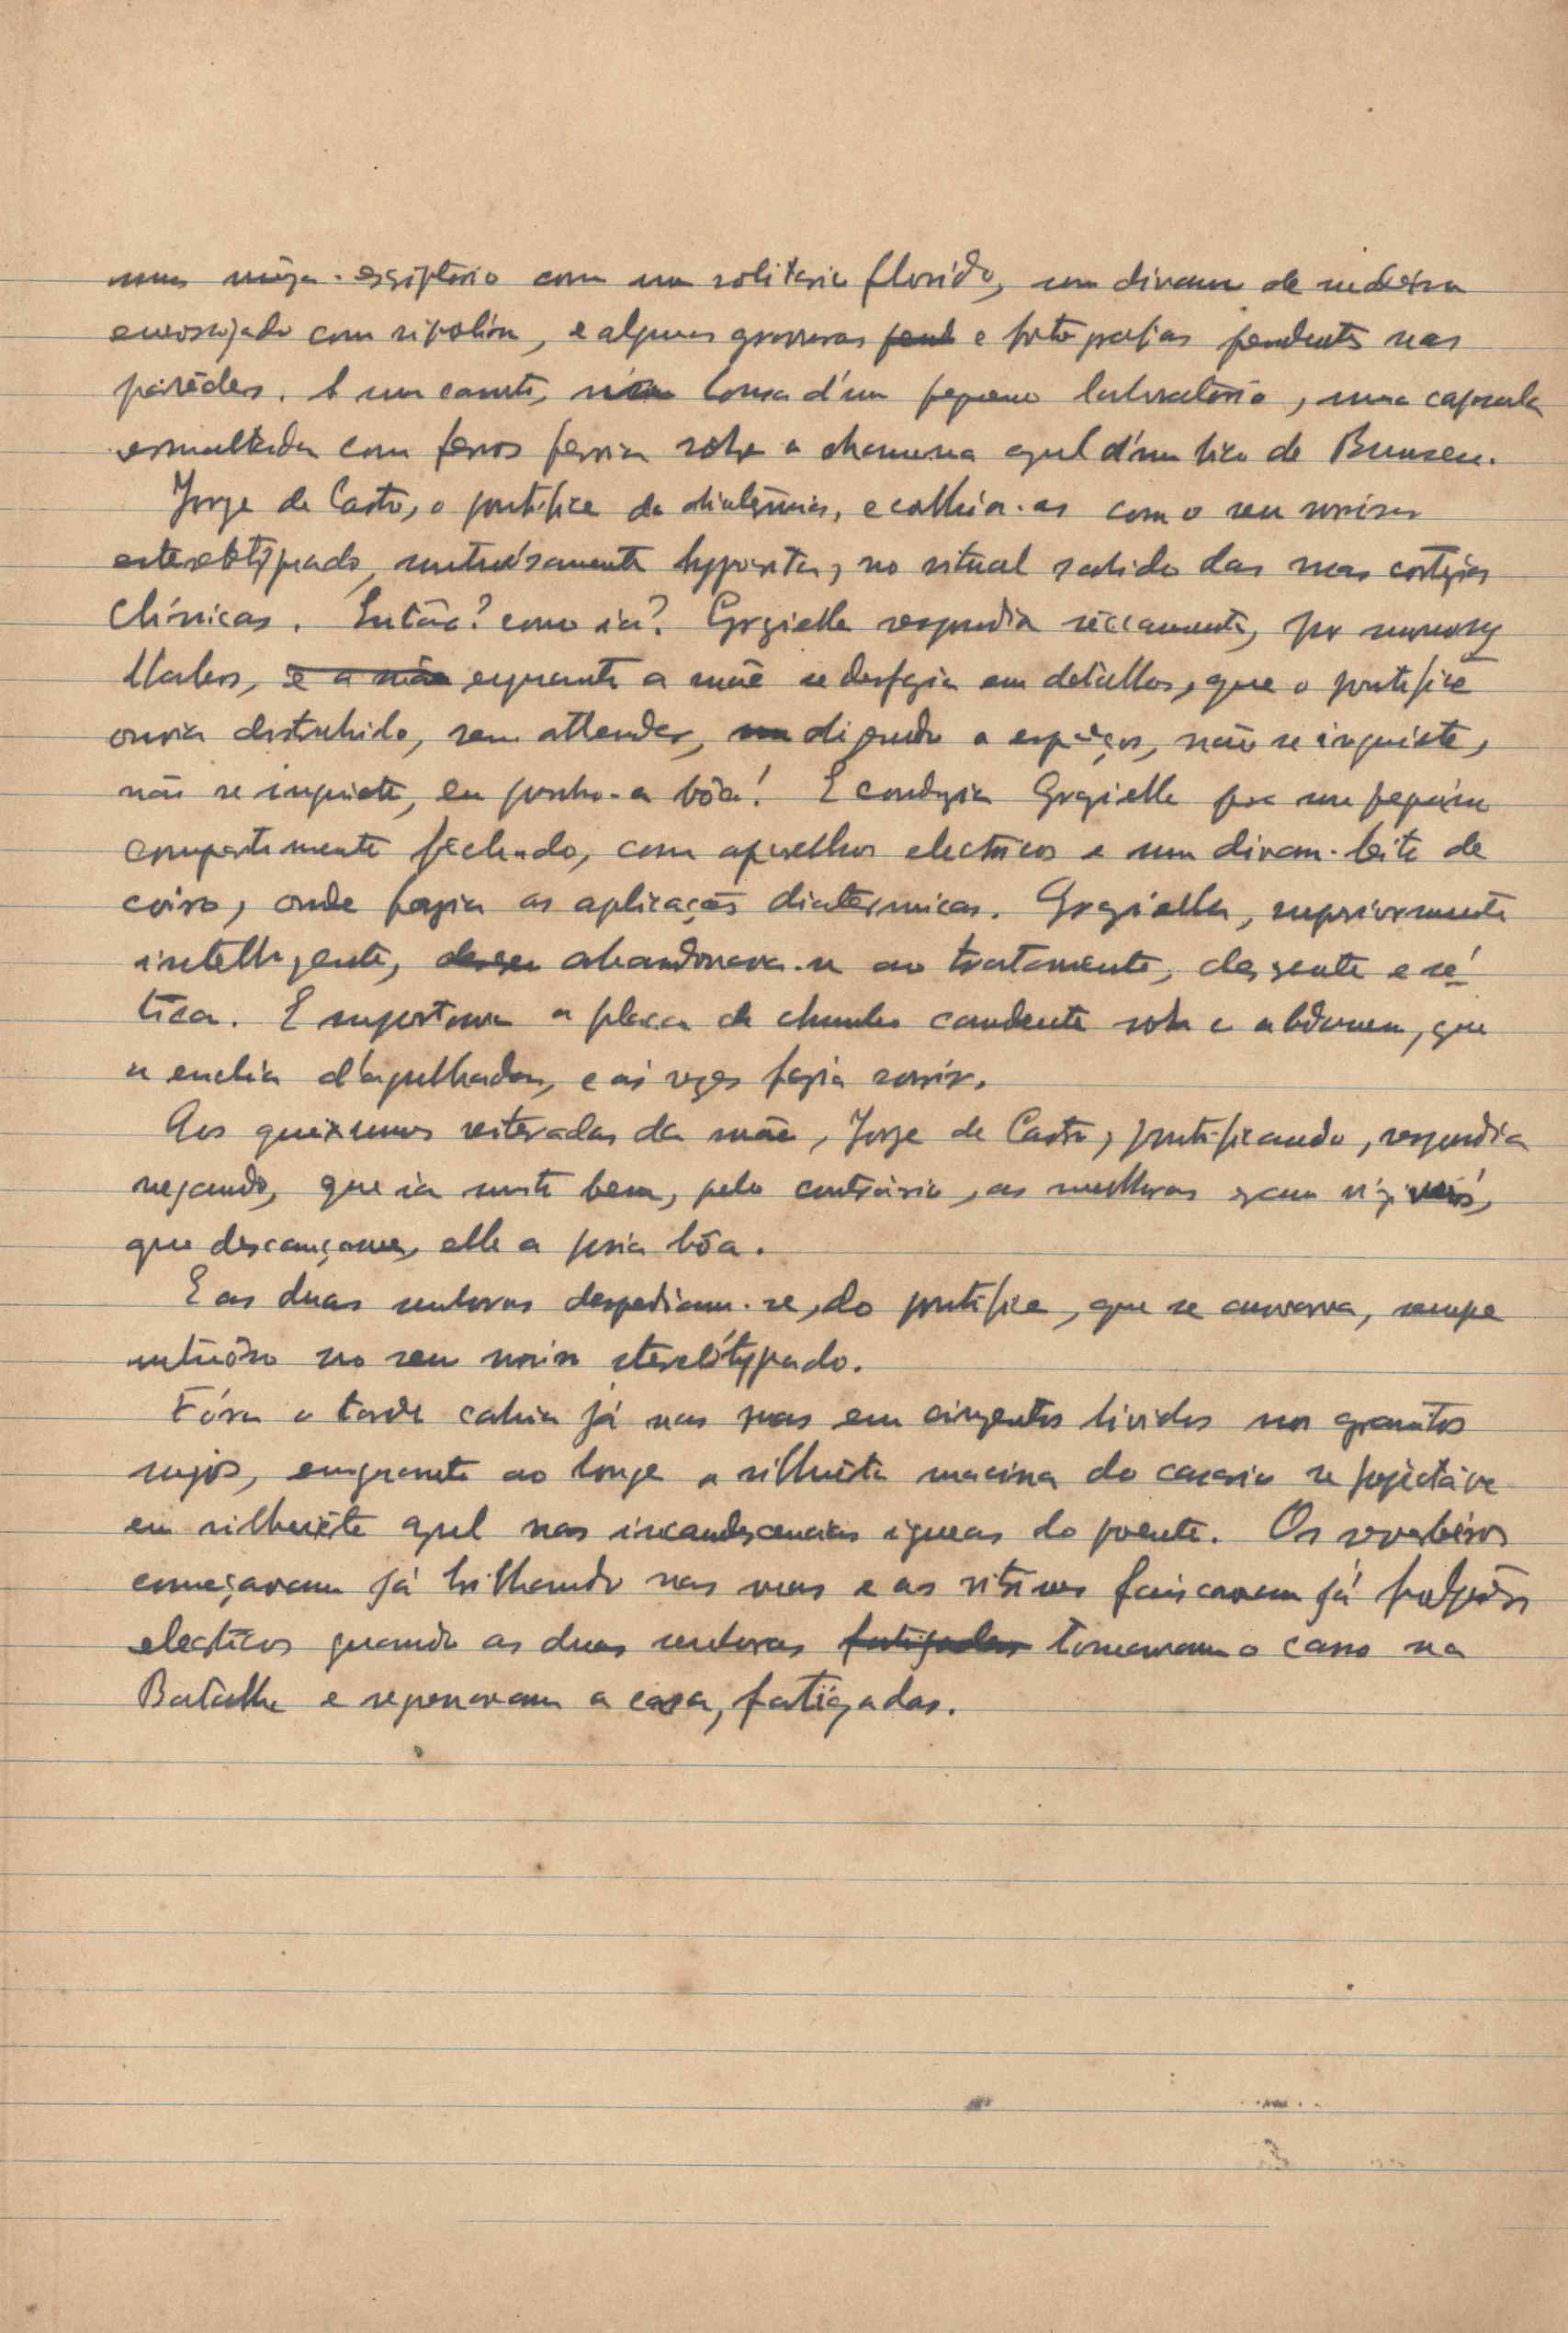 uma mêza-escriptorio com um solitario florido, um divam de madeira
envernizado com ripolin, e algumas gravuras e fotografias pendentes nas
parêdes. A um canto, n'uma lousa d'um pequeno laboratório, uma capsula
esmaltada com ferros fervia sobre a chamma azul d'um bico de Bunsen.
Jorge de Castro, o pontifice da diatermia, acolhia-as com o seu sorriso
estereotypado, untuósamente hypocrita, no ritual sabido das suas cortezias
clínicas. Então? como ia? Grazielle respondia sêccamente, por monosy
llabos, e a mãe enquanto a mãe se desfazia em detalhes, que o pontifice
ouvia distrahido, sem attender, dizendo a espaços, não se inquiete,
não se inquiete, eu ponho-a bôa! E conduzia Grazielle pra um pequeno
compartimento fechado, com aparelhos electricos e um divam-leito de
coiro, onde fazia as aplicações diatermicas. Grazielle, superiormente
intelligente, abandonava-se ao tratamento, descrente e scé
tica. E suportava a placa de chumbo candente sobre o abdomen, que
a enchia d'agulhadas, e ás vezes fazia sorrir.
Aos queixumes reiterados da mãe, Jorge de Castro, pontificando, respondia
negando, que ia muito bem, pelo contrário, as melhoras eram vizíveis,
que descançasse, elle a poria bôa.
E as duas senhoras despediam-se, do pontifice, que se curvava, sempre
untuôso no seu sorriso stereótypado.
Fóra a tarde cahia já nas ruas em cinzentos lividos nos granitos
sujos, enquanto ao longe a silhuêta macissa do casario se projectáva
em silhuête azul nas incandescencias igneas do poente. Os reverbéros
começavam já brilhando nas ruas e as vitrines faiscavam já
electricos quando as duas senhoras fatigadas tomavam o carro na
Batalha e regressavam a casa, fatigadas.